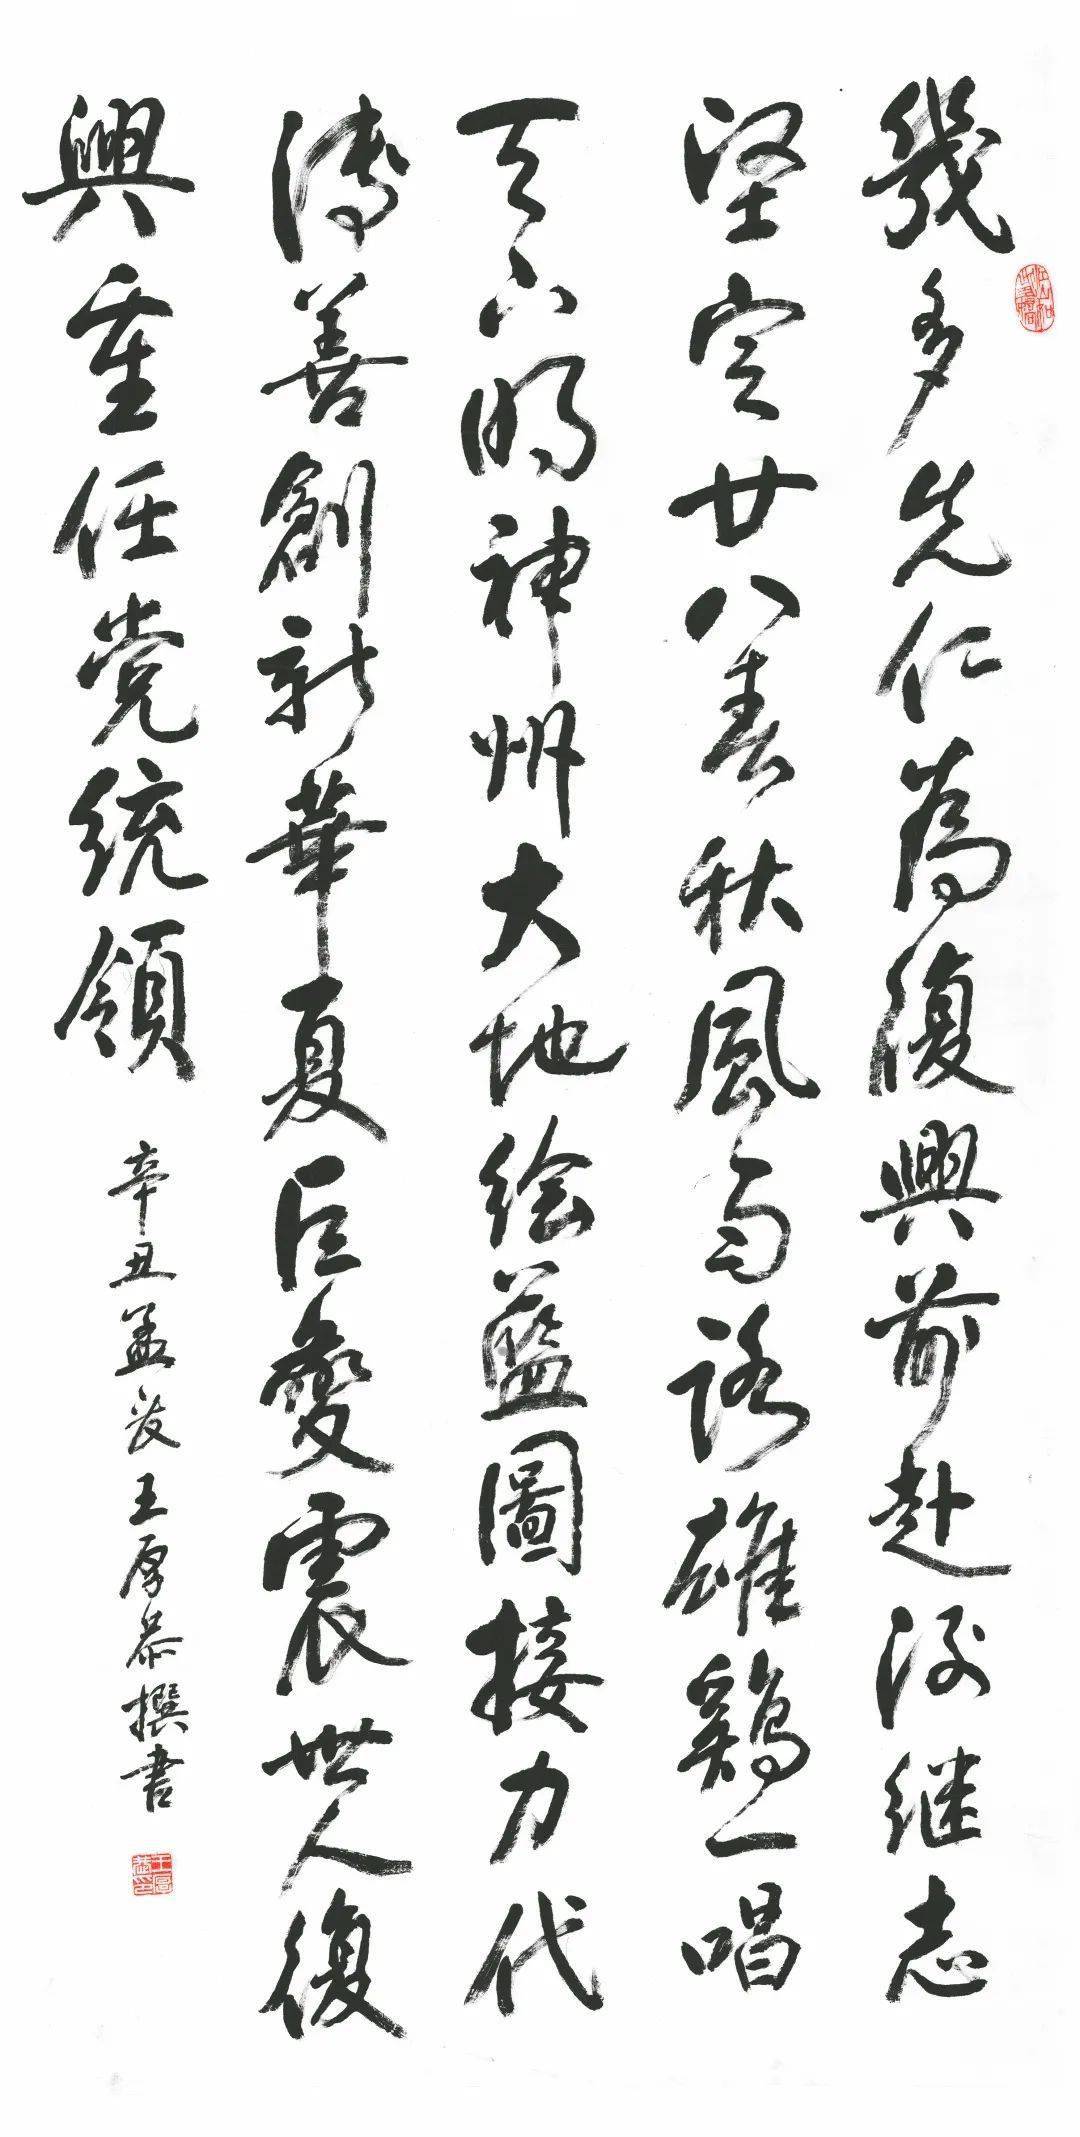 幾多先仁為復興前赴後继志
坚定廿八春秋風雨路雄鷄一唱
天下明神州大地绘藍圖接力代
傳善創新華夏巨變震世人復
興重任党統領
辛丑孟夏王厚恭撰書
王厚恭印